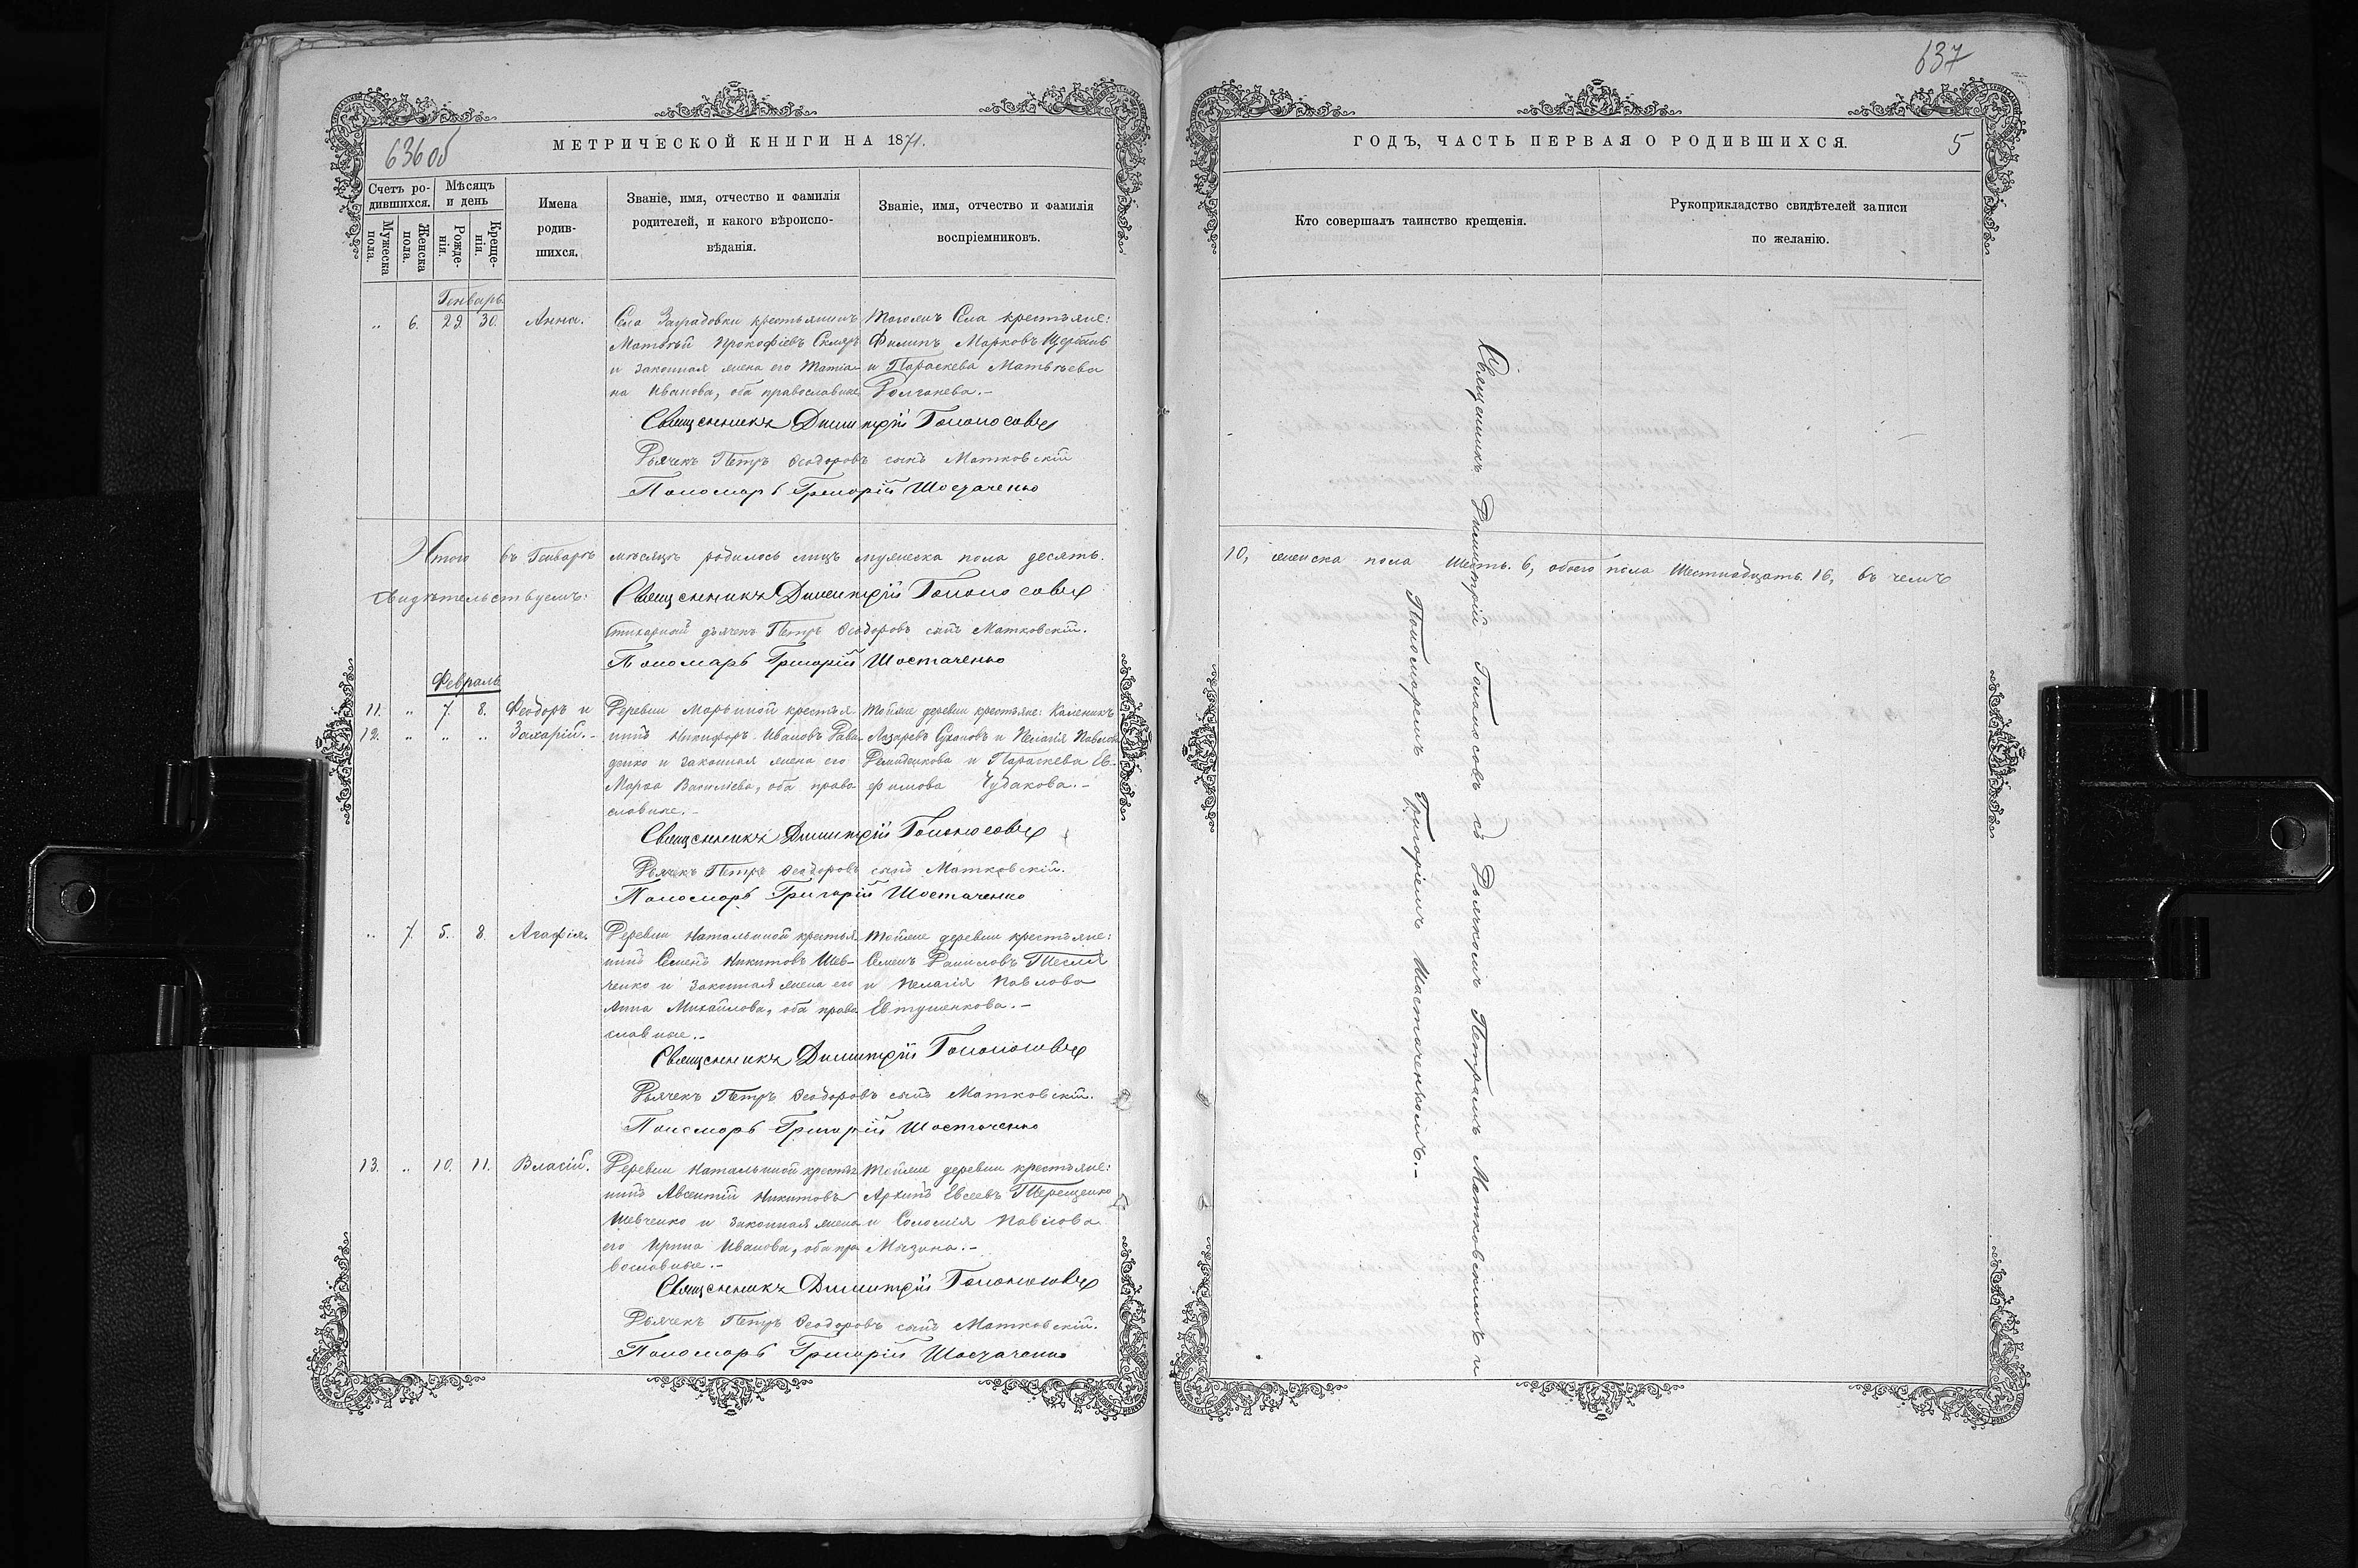 636об
МЕТРИЧЕСКОЙ КНИГИ НА 1871.
Счетъ ро-
дившихся.
Мужеска
пола.
Женска
пола.
Мѣсяцъ
и день
Рожде-
нія.
Креще-
нія.
Имена
родив-
шихся.
Званіе, имя, отчество и фамилія
родителей, и какого вѣроиспо-
вѣданія.
Званіе, имя, отчество и фамилія
воспріемниковъ.
Генварь
„ 6. 29. 30. Анна.
Села Заградовки крестьянинъ
Матвѣй Прокофіевъ Скляръ
и законная жена его Татіа-
на Иванова, оба православные
Тогожъ Села крестьяне:
Филипъ Марковъ Щербань
и Параскева Матвѣева
Священникъ Димитрій Голоносовъ
Дьячекъ Петръ Ѳеодоровъ сынъ Матковскій
Пономарь Григорій Шостаченко
Итого въ Генварѣ мѣсяцѣ родилось лицъ мужеска пола десять.
свидѣтельствуемъ:
Священникъ Димитрій Голоносовъ
Стихарный дьячекъ Петръ Ѳеодоровъ сынъ Матковскій.
Пономарь Григорій Шостаченко
Февраль
11. „ 7. 8. Ѳеодоръ и
12. „ „ „ Захарій.-
Деревни Марьиной крестья-
нинъ Никифоръ Ивановъ Рева-
денко и законная жена его
Марѳа Василіева, оба право-
славные.-
Тойже деревни крестьяне: Калиникъ
Лазаревъ Сукановъ и Пелагія Павлова
Демиденкова и Параскева Ев-
фимова Чудакова.-
Священникъ Димитрій Голоносовъ
Дьячекъ Петръ Ѳеодоровъ сынъ Матковскій.
Пономарь Григорій Шостаченко
„ 7. 5. 8. Агафія.
Деревни Натальиной крестья-
нинъ Семенъ Никитовъ Шев-
ченко и законная жена его
Анна Михайлова, оба право-
славные.-
Тойже деревни крестьяне:
Семенъ Даниловъ Тесля
и Пелагія Павлова
Евтушенкова.-
Священникъ Димитрій Голоносовъ
Дьячекъ Петръ Ѳеодоровъ сынъ Матковскій.
Пономарь Григорій Шостаченко
13. „ 10. 11. Власій.
Деревни Натальиной крестья-
нинъ Авсентій Никитовъ
Шевченко и законная жена
его Ирина Иванова, оба пра-
вославные.-
Тойже деревни крестьяне:
Архипъ Евсеевъ Терещенко
и Соломія Павлова
Мазина.-
Священникъ Димитрій Голоносовъ
Дьячекъ Петръ Ѳеодоровъ сынъ Матковскій.
Пономарь Григорій Шостаченко
637
ГОДЪ, ЧАСТЬ ПЕРВАЯ О РОДИВШИХСЯ.
5
Кто совершалъ таинство крещенія.
Рукоприкладство свидѣтелей записи
по желанію.
10, женска пола Шесть. 6, обоего пола Шестнадцать. 16, въ чемъ
Священникъ Димитрій Голоносовъ съ Дьячкомъ Петромъ Матковскимъ и
Пономаремъ Григоріемъ Шостаченкомъ.-